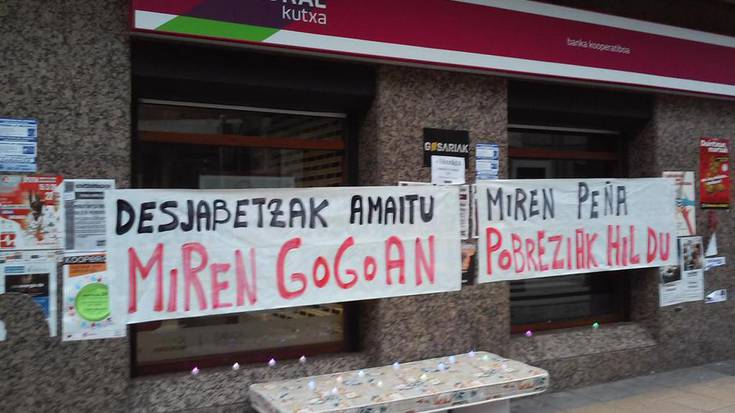 kutxa
banka kooperatiboa
GOSARIAK
DESJABETZAK AMAITU
MIREN GOGOAN
MIREN PEÑA
POBREZIAK HIL DU